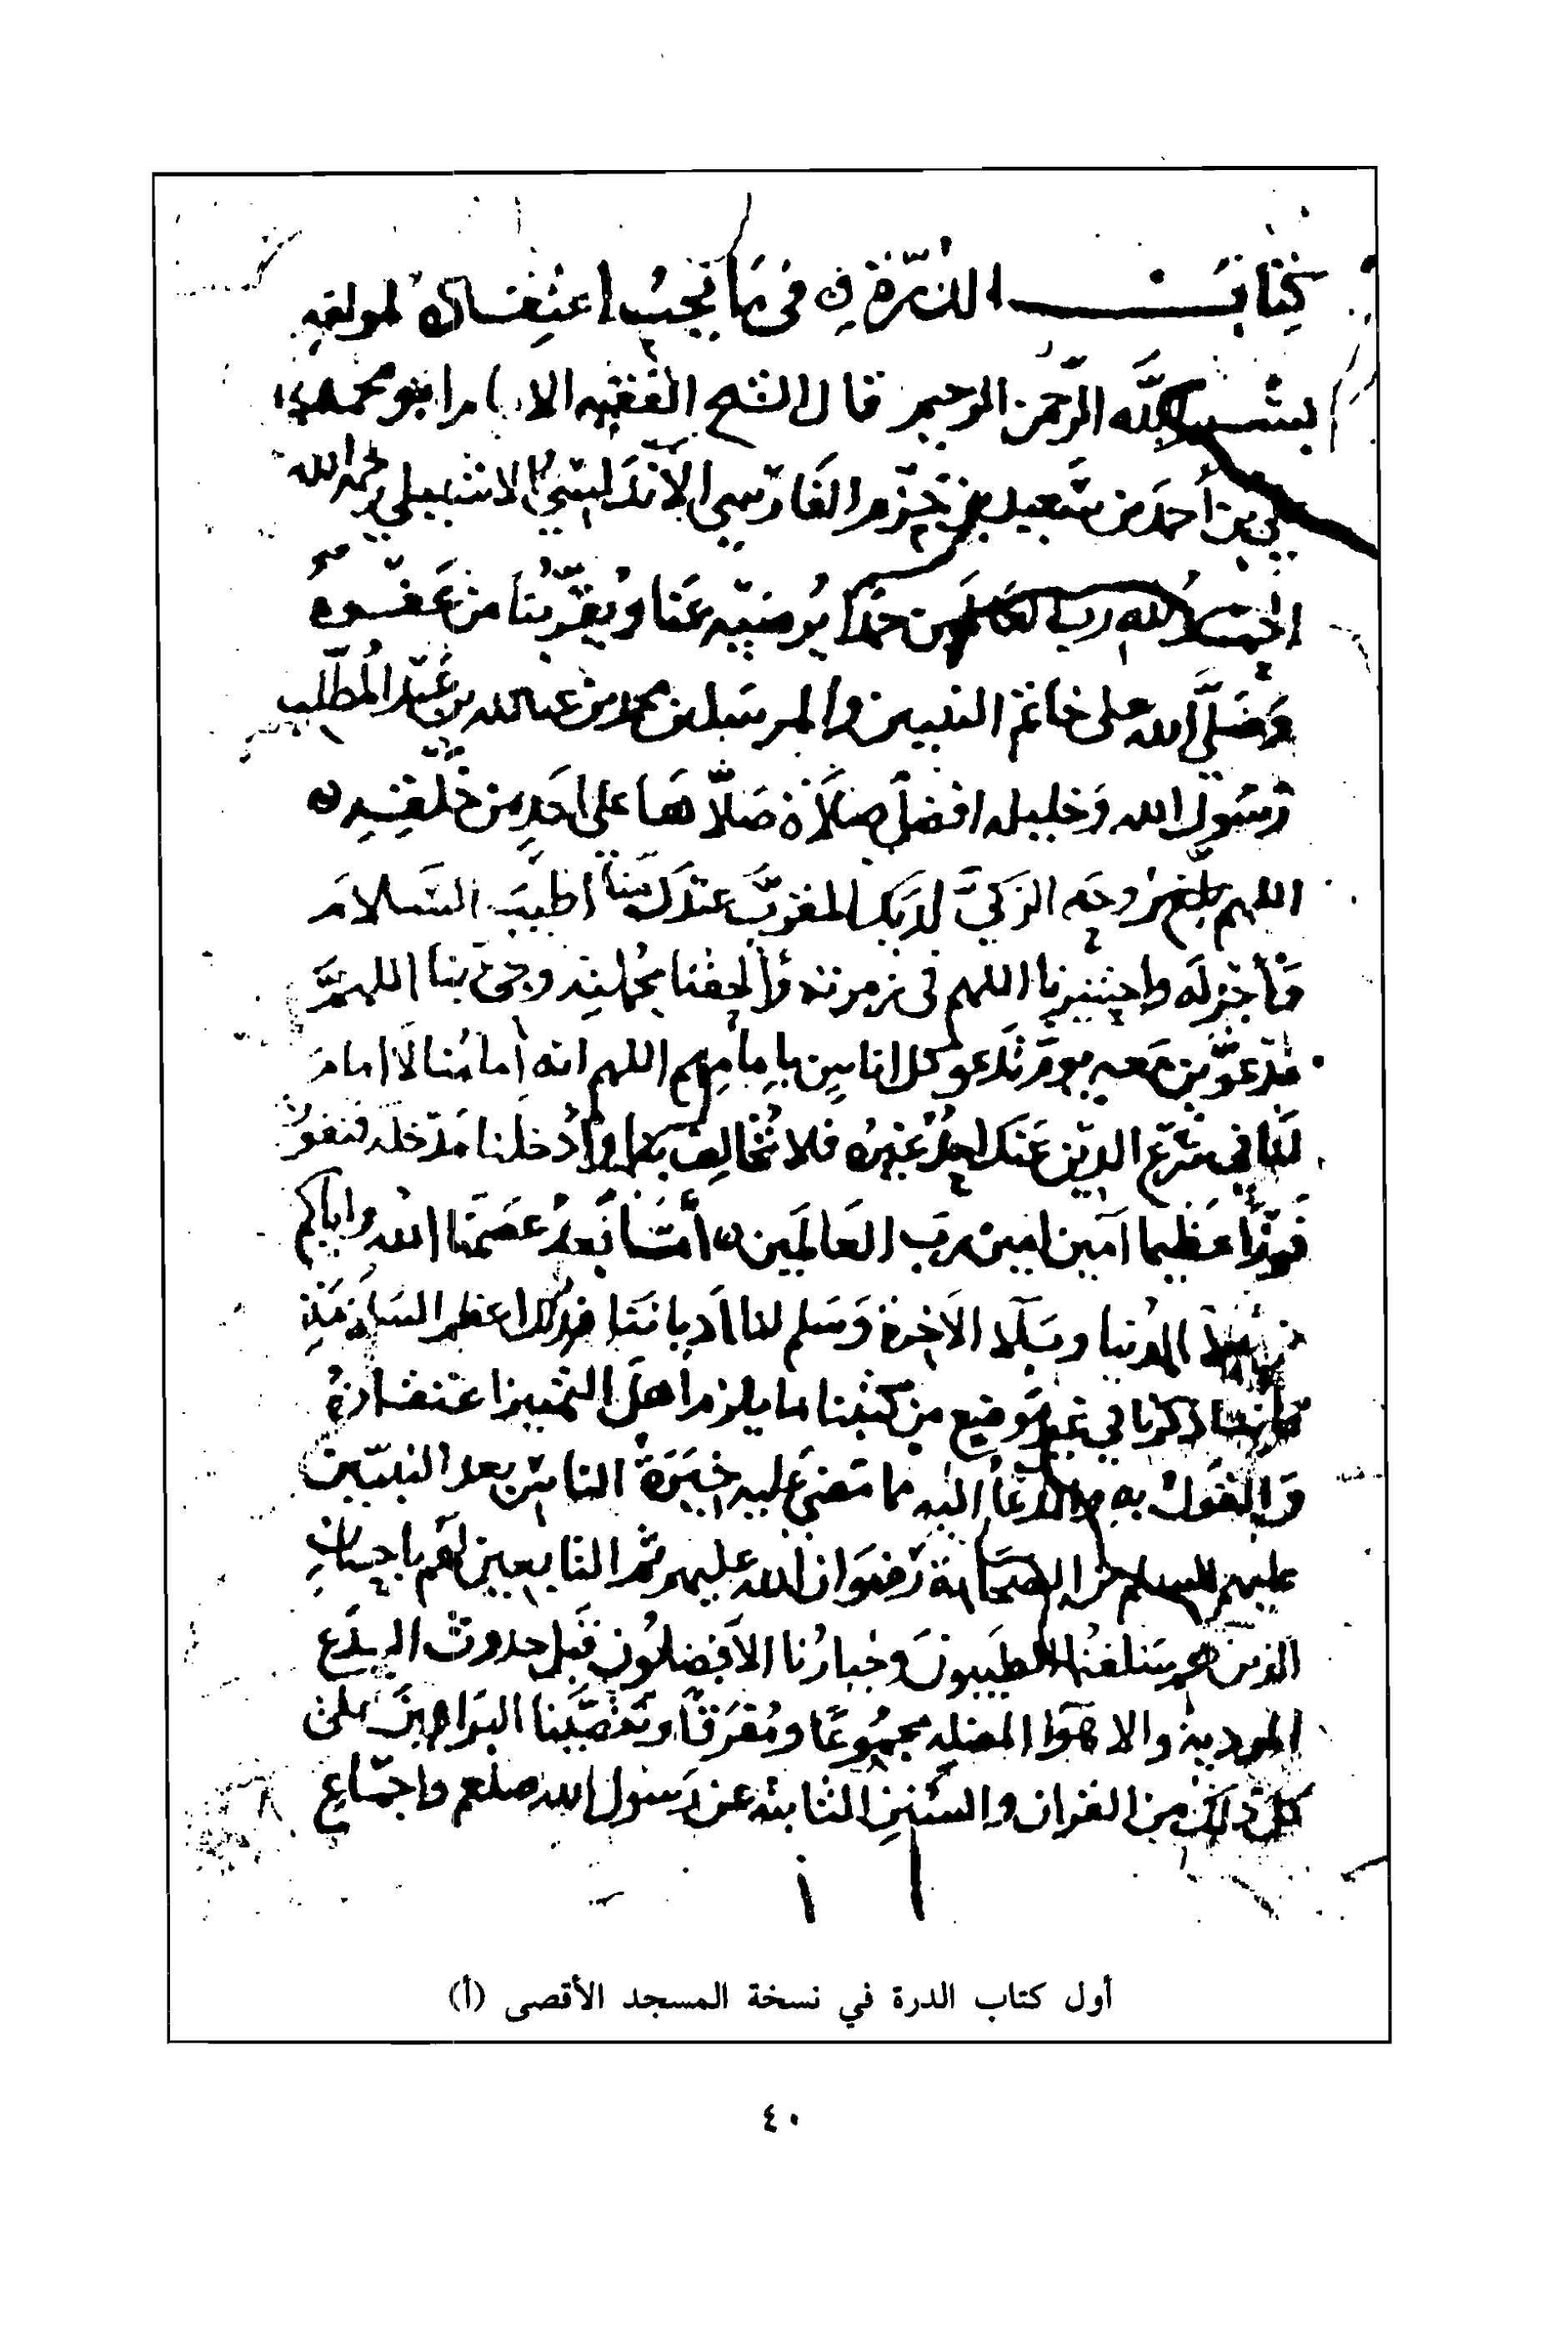 كتاب الدرة في ما يجب اعتقاده لمولفه
بسم الله الرحمن الرحيم قال الشيخ الفقيه الامام ابو محمد
علي بن أحمد بن سعيد بن حزم الفارسي الأندلسي الاشبيلي رحمه الله
الحمد لله رب العالمين حمدًا يرضيه عنا ويُقرِّبُنا من عفوه
وَصَلَّى الله على خاتم النبيين والمرسلين محمد بن عبد الله بن عَبْد المُطَّلِب
رَسُول الله وَخليله افضل صلاة صَلاَّها على احَدٍ من خلقه
اللهم بلغ روحَه الزكيَّ لديك المقرَّبَ عندك منا اطيبَ السَّلامَ
وَأجزلَه واحشرنا اللهم في زمرته وَألحقنا بجملته وجئ بنا اللهمَّ
مَدْعوِّين معه يومَ تَدعو كل اناسٍ بإمامهم اللهم انه إمامُنا لاَ امامَ
لَنا في شَرْع الدين عندَك احدٌ غيرُه فلا تُخالِف بنا وأدخلنا مَدْخله فنفوز
فَوزًا عَظيما آمين امين رب العالَمين أمَّا بَعد عَصَمَنا الله واياكم
الدُنيا وبَلآء الآخرة وَسلم لنا أديانَنا فذلك اعظم السَلاَمَة
فإننا ذكرنا في غير مَوضع من كتبنا ما يلزم أهلَ التمييز اعتقادُهُ
وَالقَولُ به والدعاءُ اليه مما مَضى عليه خِيَرَةُ الناس بعد النبيّين
عليهم السلام من الصحَابة رَضوَان الله عليهم ثم التابعين لهم باحسانٍ
الذين هم سَلفُنا الطَيبونَ وخيارُنا الأفضلُون قَبل حدوث البِدَع
المردية والاهوآ المضله مجمُوعًا ومُفرَقًا وَتَقصَّينا البَراهينَ على
كل ذلك من القران والسُّنَنِ الثابته عن رَسُول الله صلعم واجماع
أول كتاب الدرة في نسخة المسجد الأقصى (أ)
٤٠